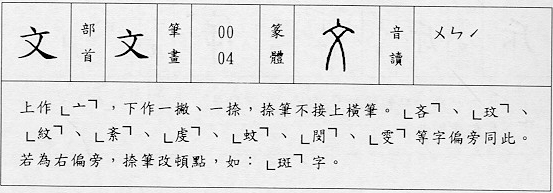 文 部首 文 筆畫 00 04 篆體 文 音讀 ㄨㄣˊ
上作「亠」,下作一撇、一捺,捺筆不接上橫筆。「吝」、「玟」、
「紋」、「紊」、「虔」、「蚊」、「閔」、「雯」等字偏旁同此。
若為右偏旁,捺筆改頓點,如:「斑」字。